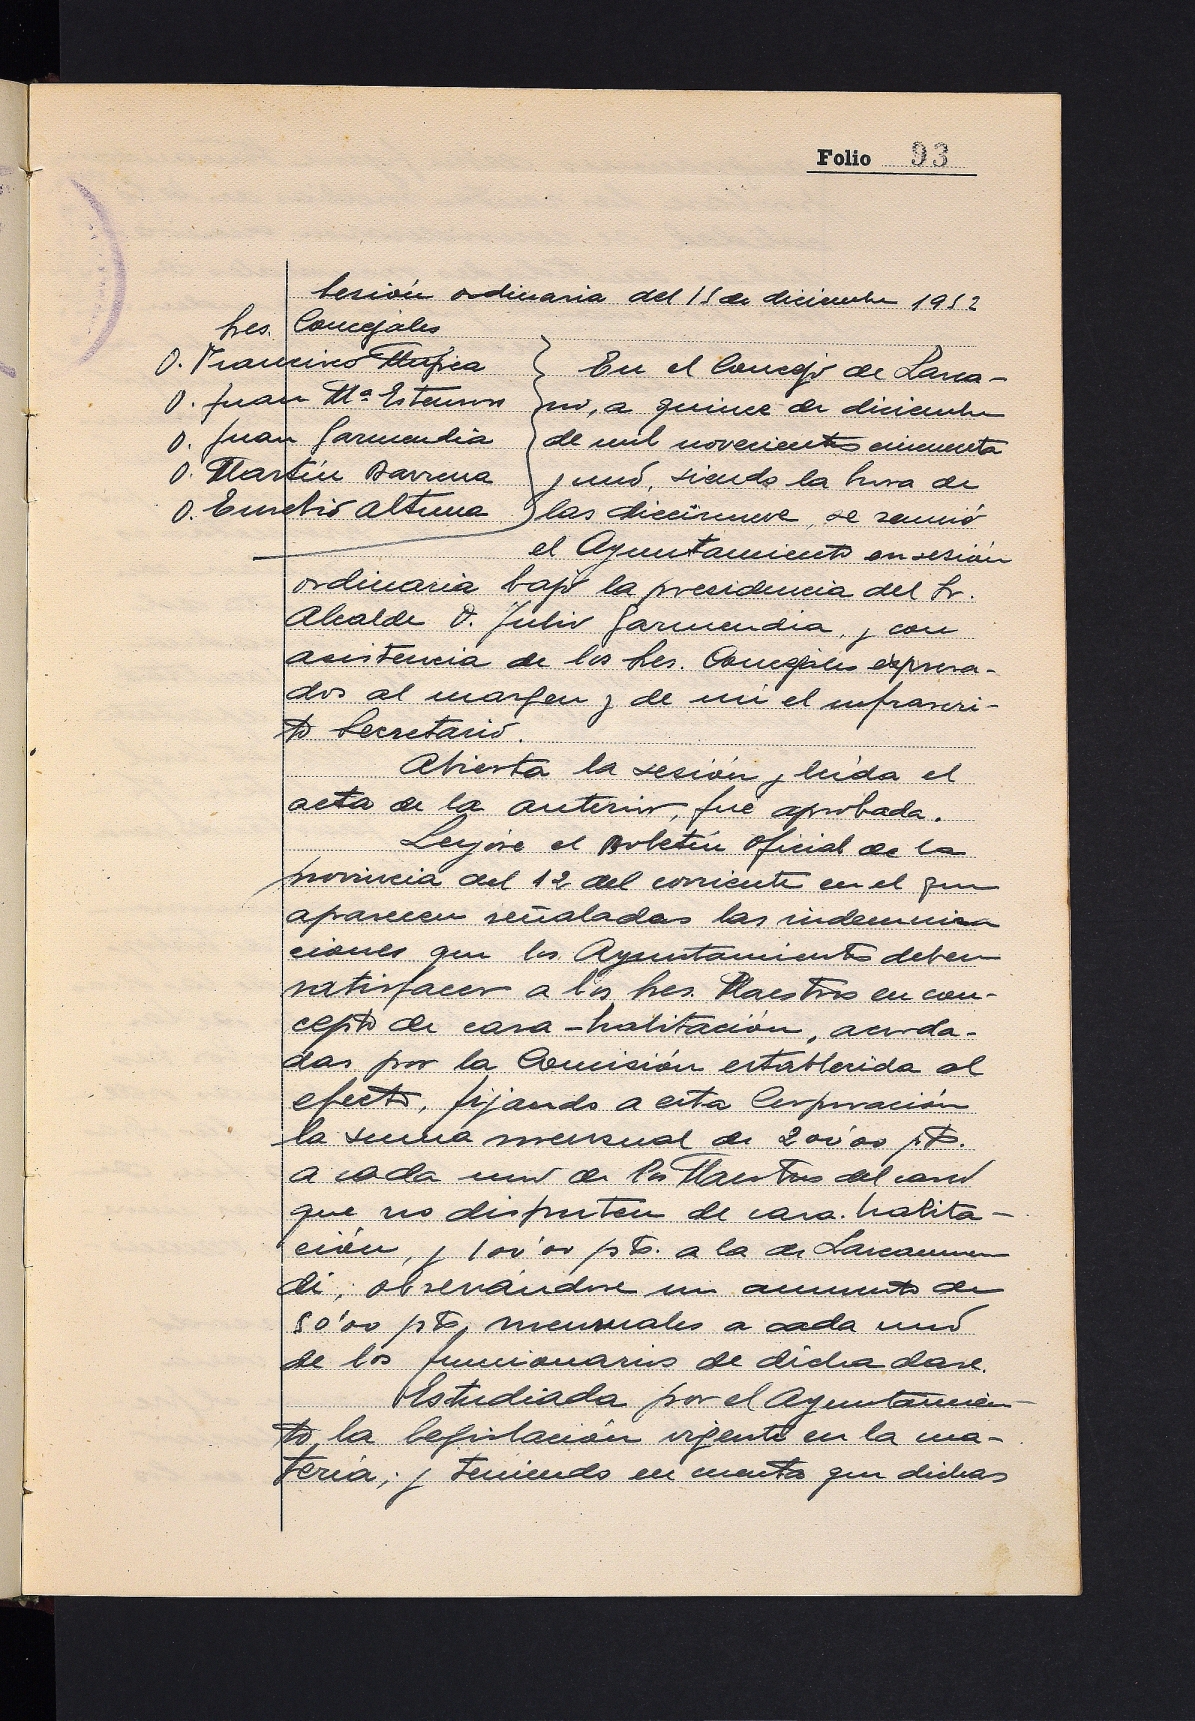 Folio 93
Sesión ordinaria del 15 de diciembre 1952
Sres. Concejales
D. Francisco Mujica
D. Juan Mª Estensoro
D. Juan Garmendia
D. Martín Barrena
D. Eusebio Altuna
En el Concejo de Lazca-
no, a quince de diciembre
de mil novecientos cincuenta
y uno, siendo la hora de
las diecinueve, se reunió
el Ayuntamiento en sesión
ordinaria bajo la presidencia del Sr.
Alcalde D. Julio Garmendia, y con
asistencia de los Sres. Concejales expresa-
dos al margen y de mi el infrascri-
to Secretario.
Abierta la sesión y leída el
acta de la anterior, fué aprobada.
Leyóse el Boletín Oficial de la
provincia del 12 del corriente en el que
aparecen señaladas las indemniza
ciones que los Ayuntamientos deben
satisfacer a los Sres. Maestros en con-
cepto de casa-habitación, acorda-
das por la Comisión establecida al
efecto, fijando a esta Corporación
la suma mensual de 200'00 pts.
a cada uno de los Maestros del casco
que no disfruten de casa-habita-
ción, y 100'00 pts. a la de Lazcaumen
di, observándose un aumento de
50'00 pts, mensuales a cada uno
de los funcionarios de dicha clase.
Estudiada por el Ayuntamien-
to la legislación vigente en la ma-
teria, y teniendo en cuenta que dichas